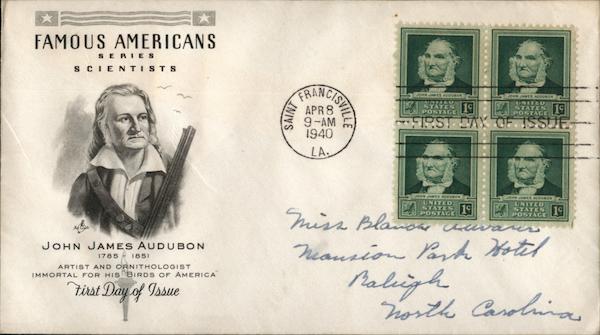 FAMOUS AMERICANS
SERIES
SCIENTISTS
JOHN JAMES AUDUBON
1785 - 1851
ARTIST AND ORNITHOLOGIST
IMMORTAL FOR HIS "BIRDS OF AMERICA"
First Day of Issue
SAINT FRANCISVILLE
APR 8
9-AM
1940
LA.
FIRST DAY OF ISSUE
JOHN JAMES AUDUBON
UNITED
STATES
POSTAGE
1¢
JOHN JAMES AUDUBON
UNITED
STATES
POSTAGE
1¢
JOHN JAMES AUDUBON
UNITED
STATES
POSTAGE
1¢
JOHN JAMES AUDUBON
UNITED
STATES
POSTAGE
1¢
Miss Blanch
Mansion Park Hotel
Raleigh
North Carolina